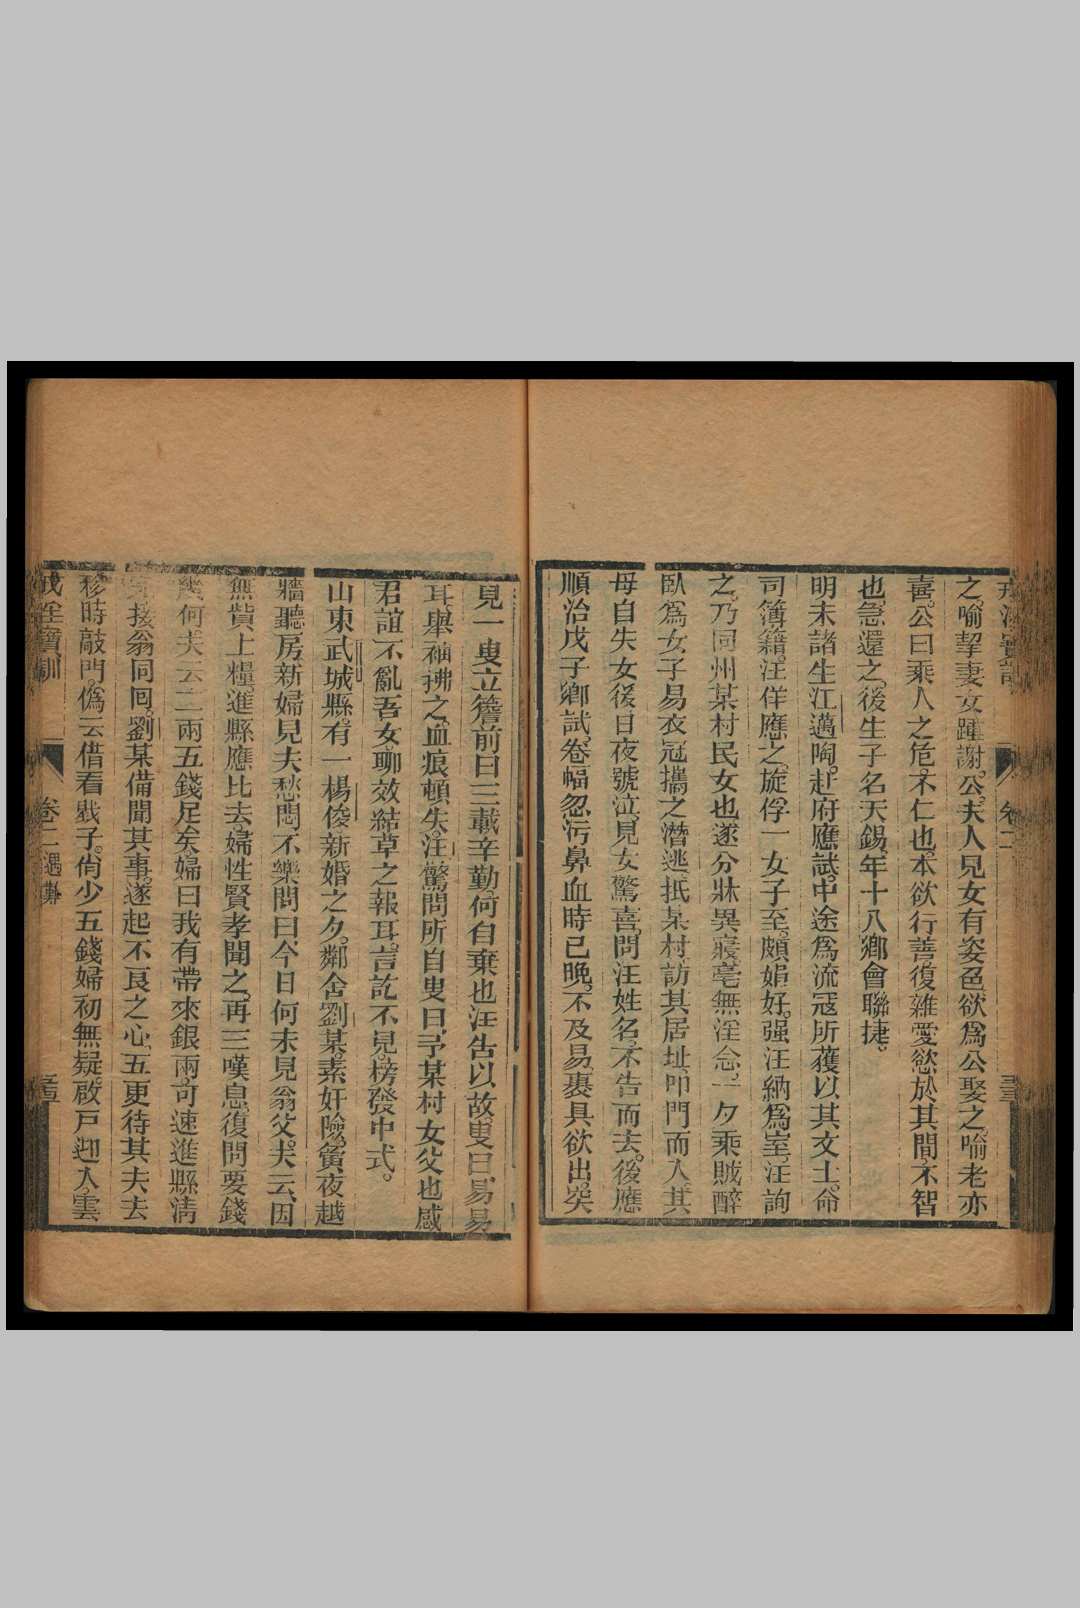 之喻挈妻女踵謝公夫人見女有姿色欲爲公娶之喻老亦
喜公曰乘人之危不仁也本欲行善復雜愛慾於其間不智
也急還之後生子名天錫年十八鄉會聯捷
明末諸生江邁陶赴府應試中途爲流寇所獲以其文士命
司簿籍汪佯應之旋俘一女子至頗娟好强汪納爲室汪詢
之乃同州某村民女也遂分牀異寢毫無淫念一夕乘賊醉
臥爲女子易衣冠攜之潛逃抵某村訪其居址叩門而入其
母自失女後日夜號泣見女驚喜問汪姓名不告而去後應
順治戊子鄉試卷幅忽污鼻血時已晚不及易裹具欲出突
見一叟立簷前曰三載辛勤何自棄也汪告以故叟曰易易
耳舉袖拂之血痕頓失汪驚問所自叟曰予某村女父也感
君誼不亂吾女聊效結草之報耳言訖不見榜發中式
山東武城縣有一楊俊新婚之夕鄰舍劉某素奸險黃夜越
牆聽房新婦見夫愁悶不樂問曰今日何未見翁父夫云因
無貲上糧進縣應比去婦性賢孝聞之再三嘆息復問要錢
幾何夫云二兩五錢足矣婦曰我有帶來銀兩可速進縣清
接翁同回劉某備聞其事遂起不良之心五更待其夫去
移時敲門僞云借看戥子尙少五錢婦初無疑啟戶迎入雲
卷二 遇難